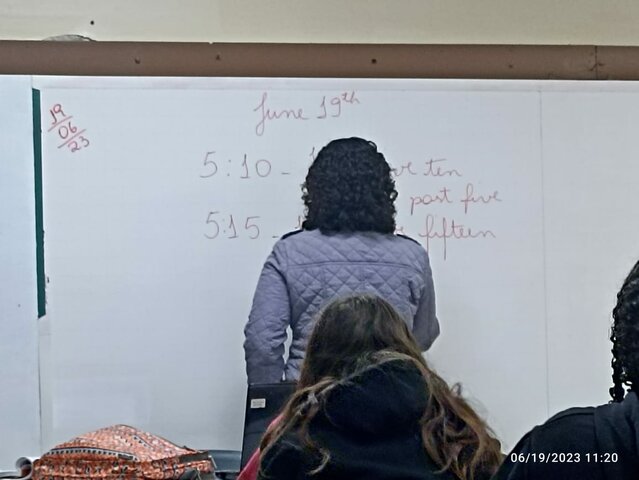 19
06
23
June 19th
5:10 - ten
past five
5:15 - fifteen
06/19/2023 11:20